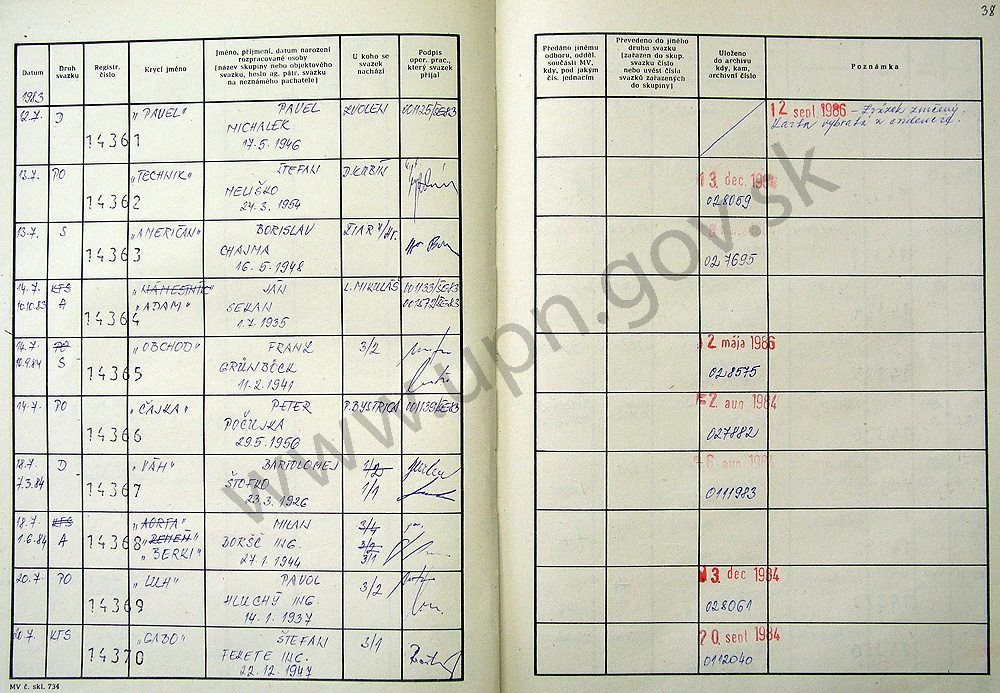 38
Datum
Druh svazku
Registr. číslo
Krycí jméno
Jméno, příjmení, datum narození
rozpracované osoby
(název skupiny nebo objektového
svazku, heslo ag. pátr. svazku
na neznámého pachatele)
U koho se
svazek
nachází
Podpis
oper. prac.,
který svazek
přijal
Předáno jinému
odboru, odděl.
součásti MV,
kdy, pod jakým
čís. jednacím
Převedeno do jiného
druhu svazku
(zařazen do skup.
svazku číslo
nebo uvést čísla
svazků zařazených
do skupiny)
Uloženo
do archivu
kdy, kam,
archivní číslo
Poznámka
1983
12.7. D 14361 „PAVEL" PAVEL ZVOLEN
MICHALEK
17.5.1946
12 sept 1986
13.7. PO 14362 „TECHNIK" ŠTEFAN D.KUBÍN
MELIŠKO
24.3.1954
13 dec.
028059
13.7. S 14363 „AMERIČAN" BORISLAV
CHAJMA
16.5.1948
027695
14.7. KTS 14364 „NÁMESTNÍK" JÁN L.MIKULÁŠ
10.10.83 A „ADAM" SEKAN
1.7.1935
14.7. PO 14365 „OBCHOD" FRANZ 3/2
10.9.84 S GRÜNBÖCK
11.2.1941
12 mája 1986
028575
14.7. PO 14366 „ČAJKA" PETER P.BYSTRICA
29.5.1956
2. aun 1984
027882
18.7. D 14367 „VÁH" BARTOLOMEJ 1/2
7.3.84 ŠTOFKO 1/1
23.3.1926
aun 1984
0111983
18.7. KTS 14368 „AORTA" MILAN 3/4
1.6.84 A „REMEŇ" BORŠČ ING. 3/2
„BERKI" 27.1.1944 3/1
20.7. PO 14369 „LUH" PAVOL 3/2
HLUCHÝ ING.
14.1.1937
13 dec 1984
028061
20.7. KTS 14370 „GABO" ŠTEFAN 3/1
FEKETE ING.
22.12.1947
20 sept 1984
0112040
MV č. skl. 734
www.upn.gov.sk